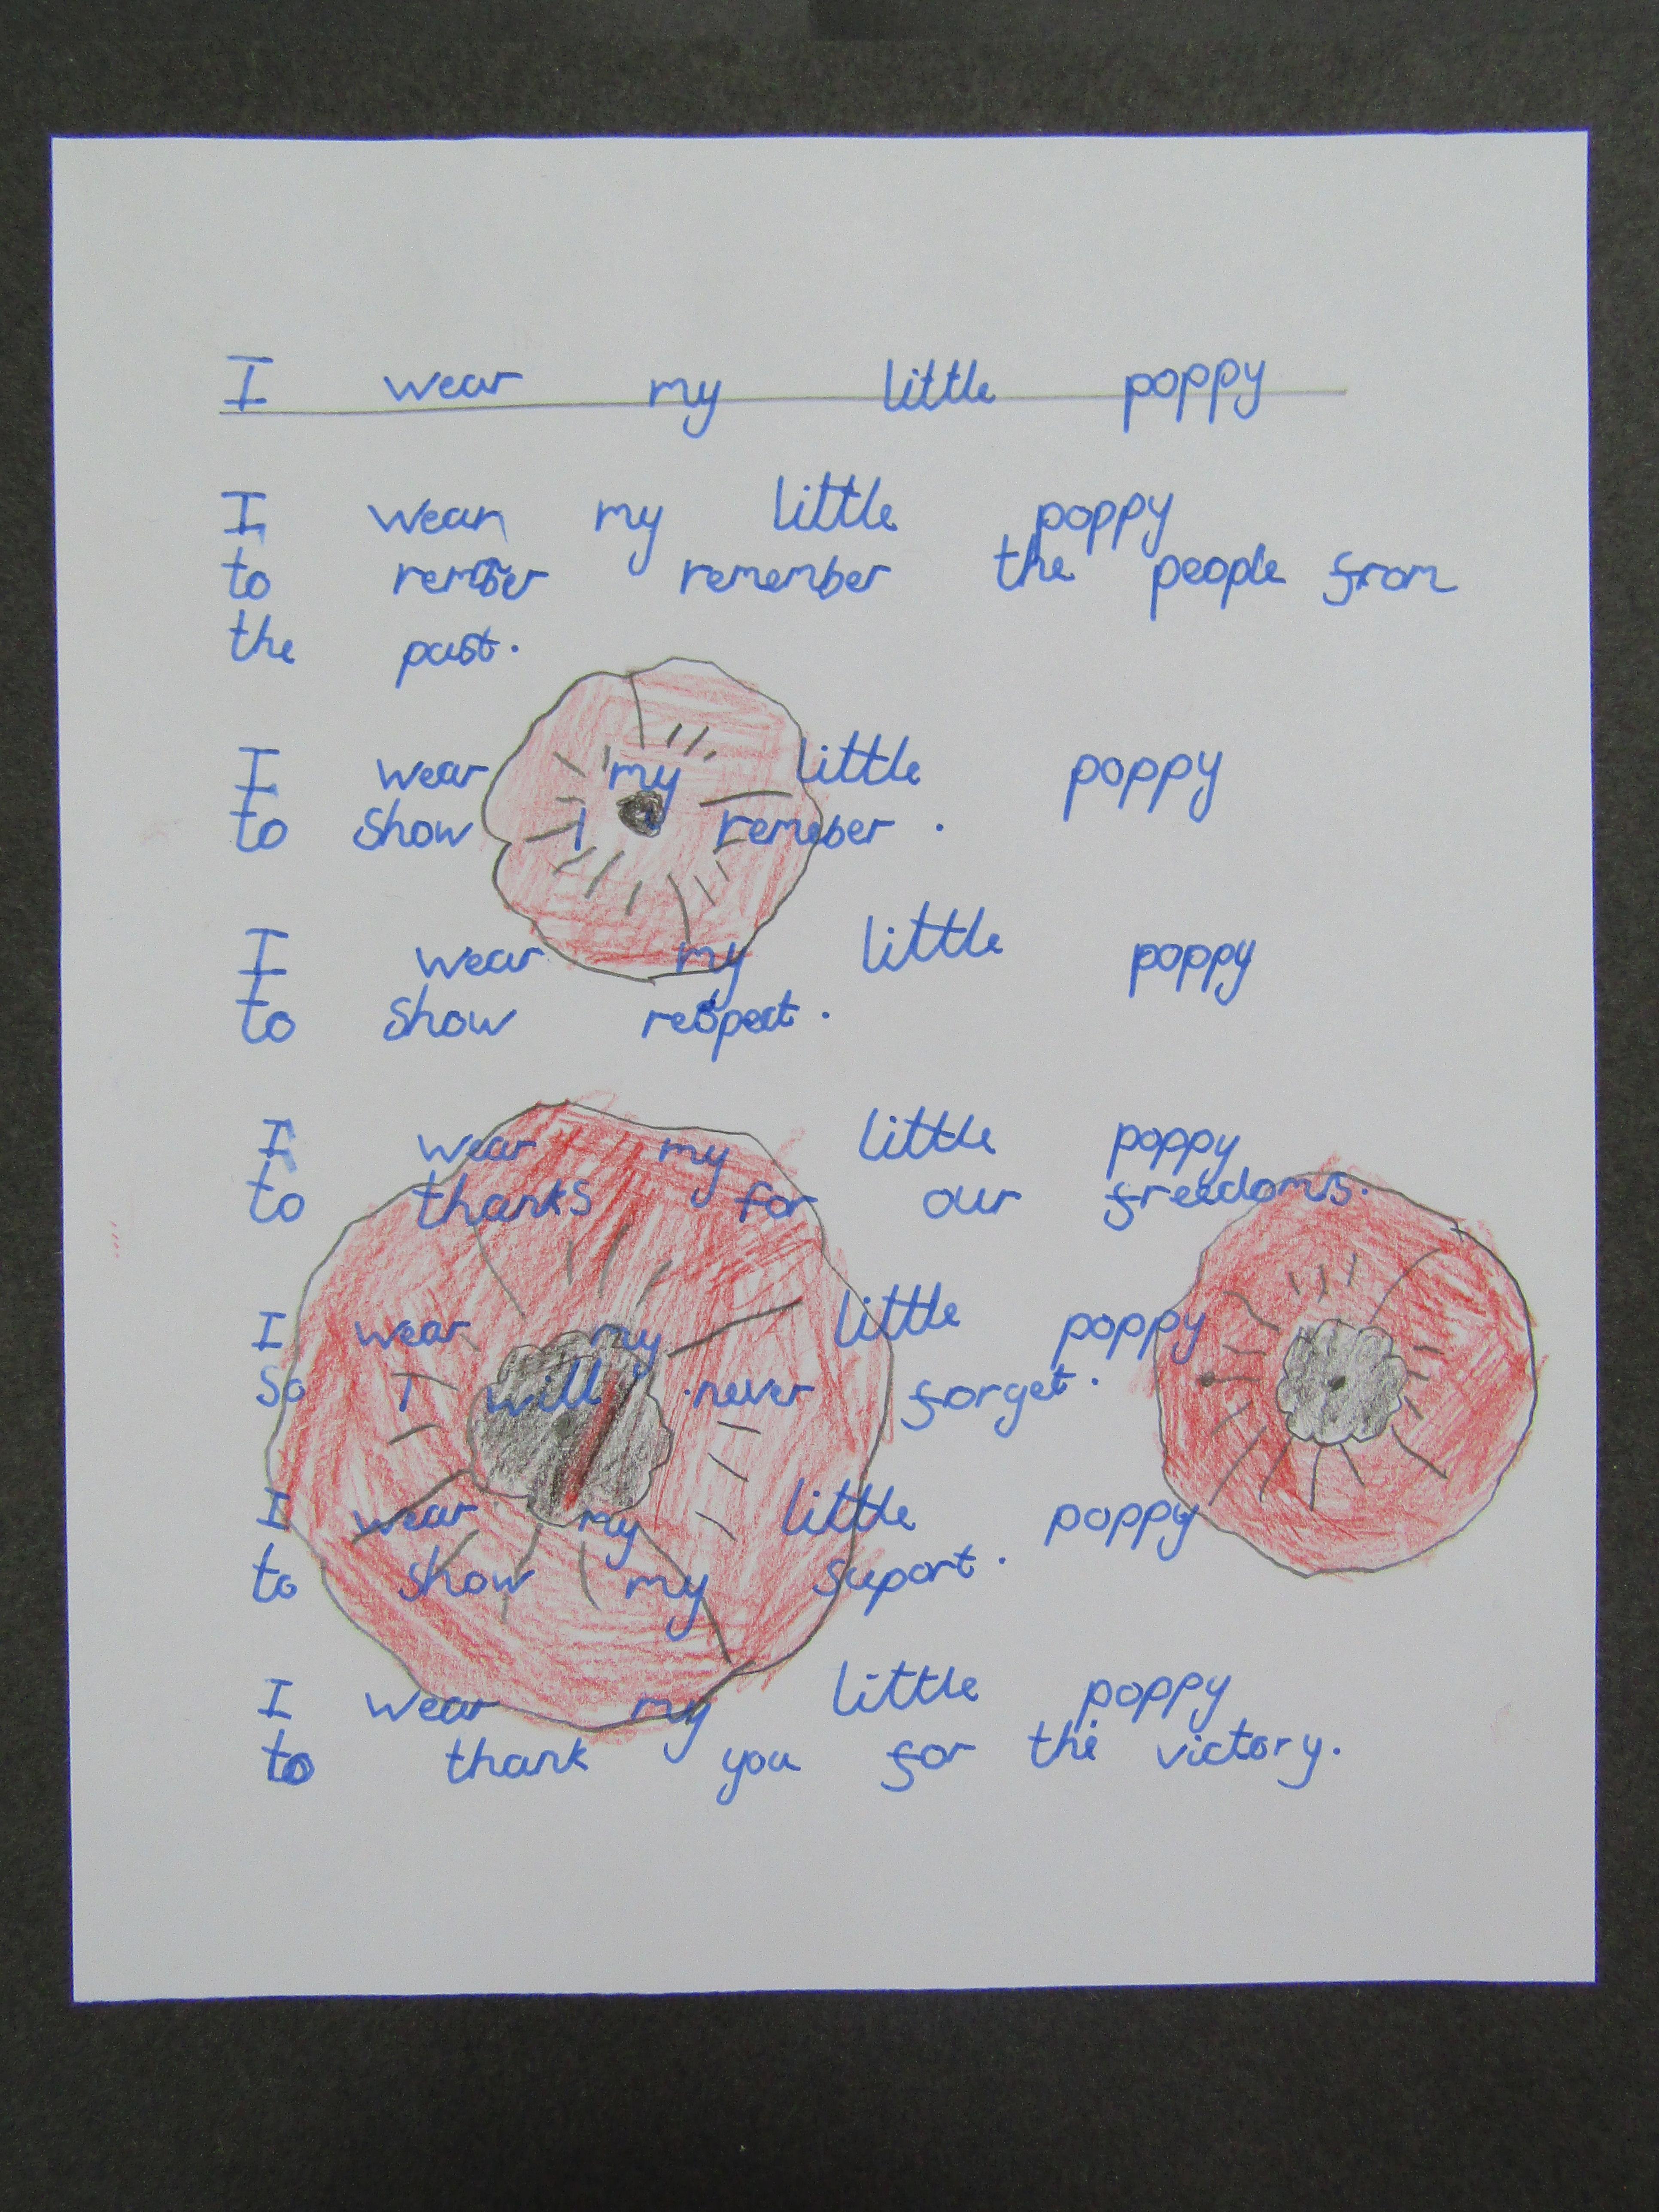 I wear my little poppy
I wear my little poppy
to remember the people from
the past.
I wear my little poppy
to show I remeber .
I wear my little poppy
to show respect.
I wear my little poppy
to thanks for our freedoms.
I wear my little poppy
So I will never forget.
I wear my little poppy
to show my suport.
I wear my little poppy
to thank you for the victory.